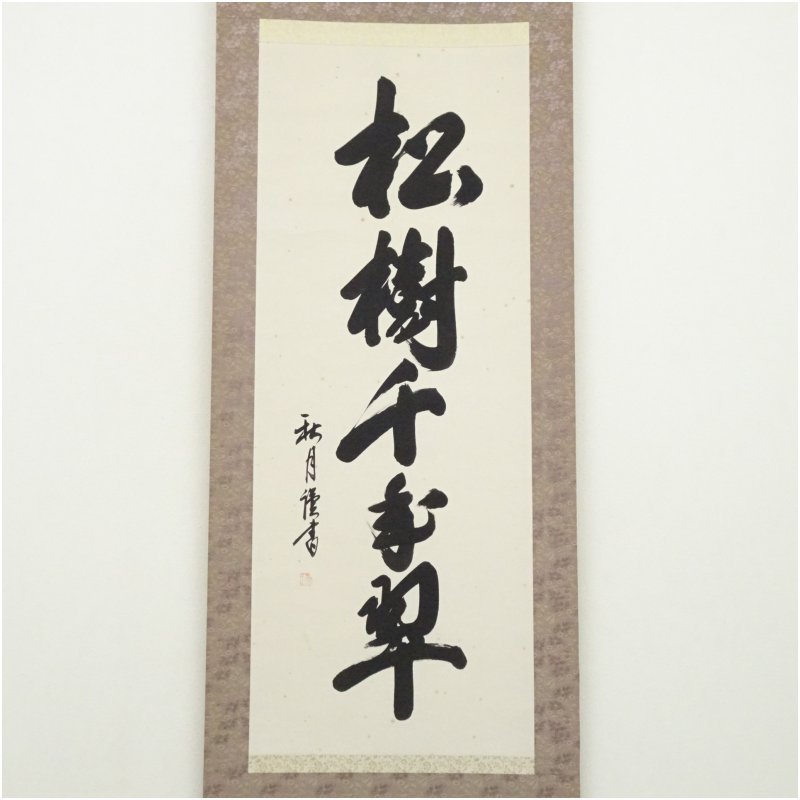 松樹千年翠
秋月謹書